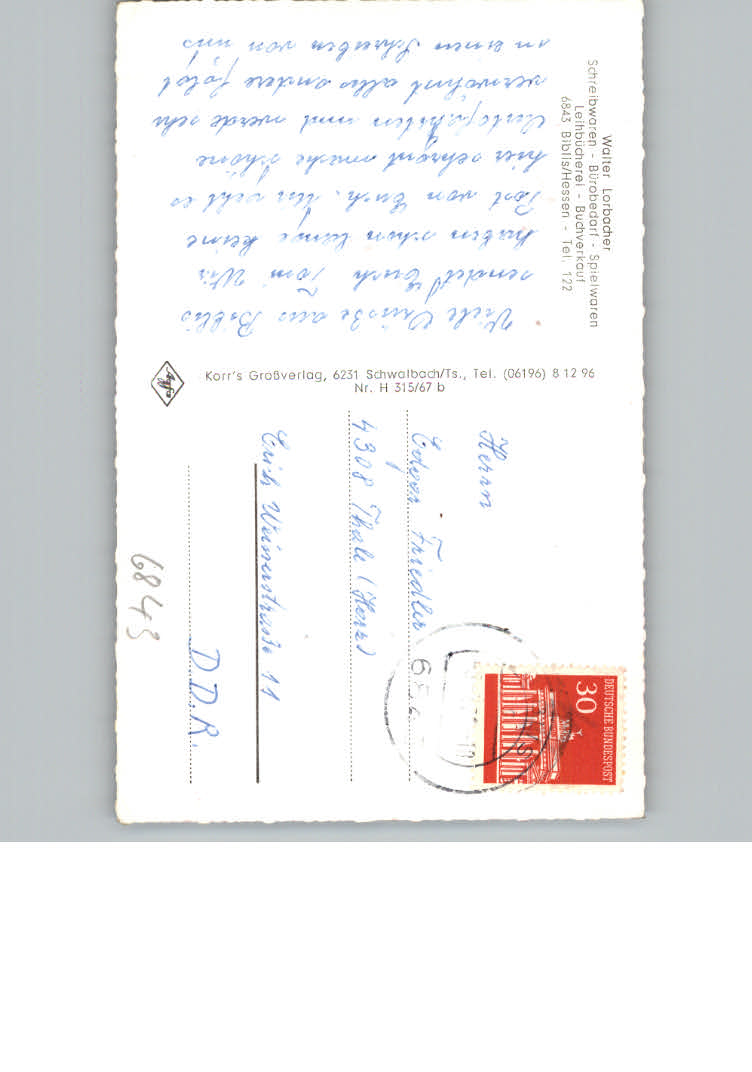 Walter Lorbacher
Schreibwaren - Bürobedarf - Spielwaren
Leihbücherei - Buchverkauf
6843 Biblis/Hessen - Tel. 122
Viele Grüße aus Biblis
sendet Euch Tom Wir
haben schon lange keine
Post von Euch. Uns geht es
hier schön mache schöne
Autofahrten und werde sehr
verwöhnt alles andere folgt
in einem Schreiben von uns
Agfa
Korr's Großverlag, 6231 Schwalbach/Ts., Tel. (06196) 8 12 96
Nr. H 315/67 b
Herrn
Edgar Friedler
4308 Thale (Harz)
Erich Weinertstraße 11
D.D.R.
6843
30
DEUTSCHE BUNDESPOST